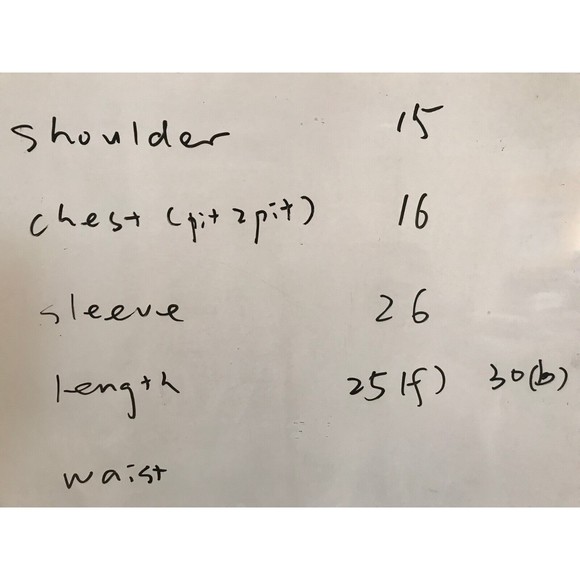 shoulder 15
chest (pit 2 pit) 16
sleeve 26
length 25(f) 30(b)
waist